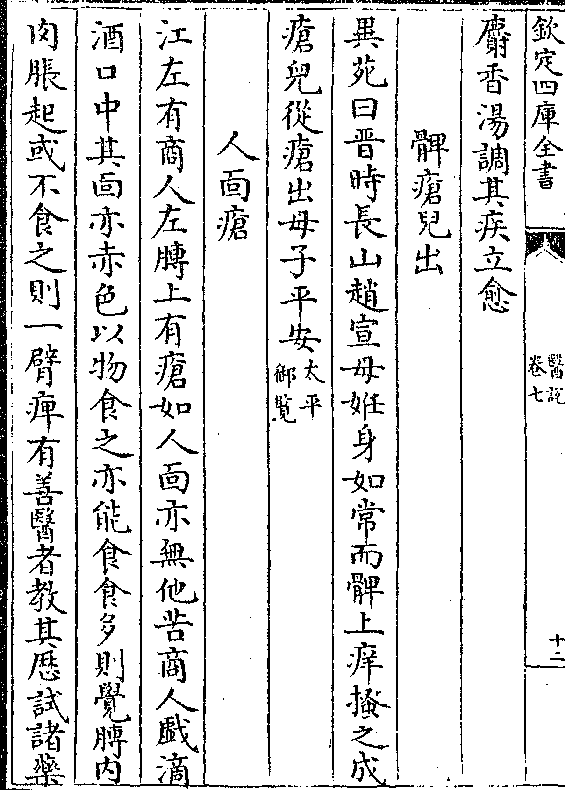 欽定四庫全書
醫説
卷七
十二
麝香湯調其疾立愈
髀瘡兒出
異苑曰晋時長山趙宣母姙身如常而髀上痒搔之成
瘡兒從瘡出母子平安太平御覧
人面瘡
江左有商人左膊上有瘡如人面亦無他苦商人戯滴
酒口中其面亦赤色以物食之亦能食食多則覺膊内
肉脹起或不食之則一臂痺有善醫者教其厯試諸藥